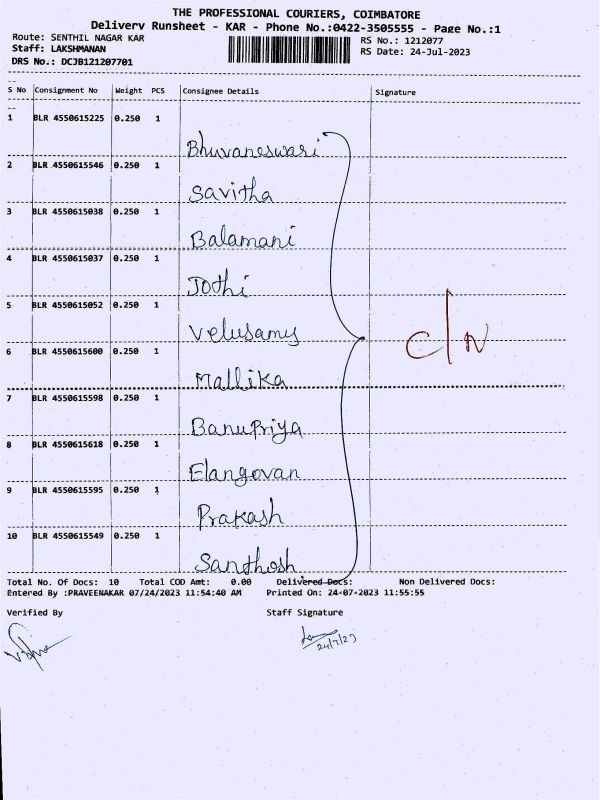 THE PROFESSIONAL COURIERS, COIMBATORE
Delivery Runsheet - KAR - Phone No.:0422-3505555 - Page No.:1
Route: SENTHIL NAGAR KAR RS No.: 1212077
Staff: LAKSHMANAN RS Date: 24-Jul-2023
DRS No.: DCJB121207701
S No Consignment No Weight PCS Consignee Details Signature
1 BLR 4550615225 0.250 1
Bhuvaneswari
2 BLR 4550615546 0.250 1
Savitha
3 BLR 4550615038 0.250 1
Balamani
4 BLR 4550615037 0.250 1
Jothi
5 BLR 4550615052 0.250 1
Velusamy
C/N
6 BLR 4550615600 0.250 1
Mallika
7 BLR 4550615598 0.250 1
BanuPriya
8 BLR 4550615618 0.250 1
Elangovan
9 BLR 4550615595 0.250 1
Prakash
10 BLR 4550615549 0.250 1
Santhosh
Total No. Of Docs: 10 Total COD Amt: 0.00 Delivered Docs: Non Delivered Docs:
Entered By :PRAVEENAKAR 07/24/2023 11:54:40 AM Printed On: 24-07-2023 11:55:55
Verified By Staff Signature
24/7/23